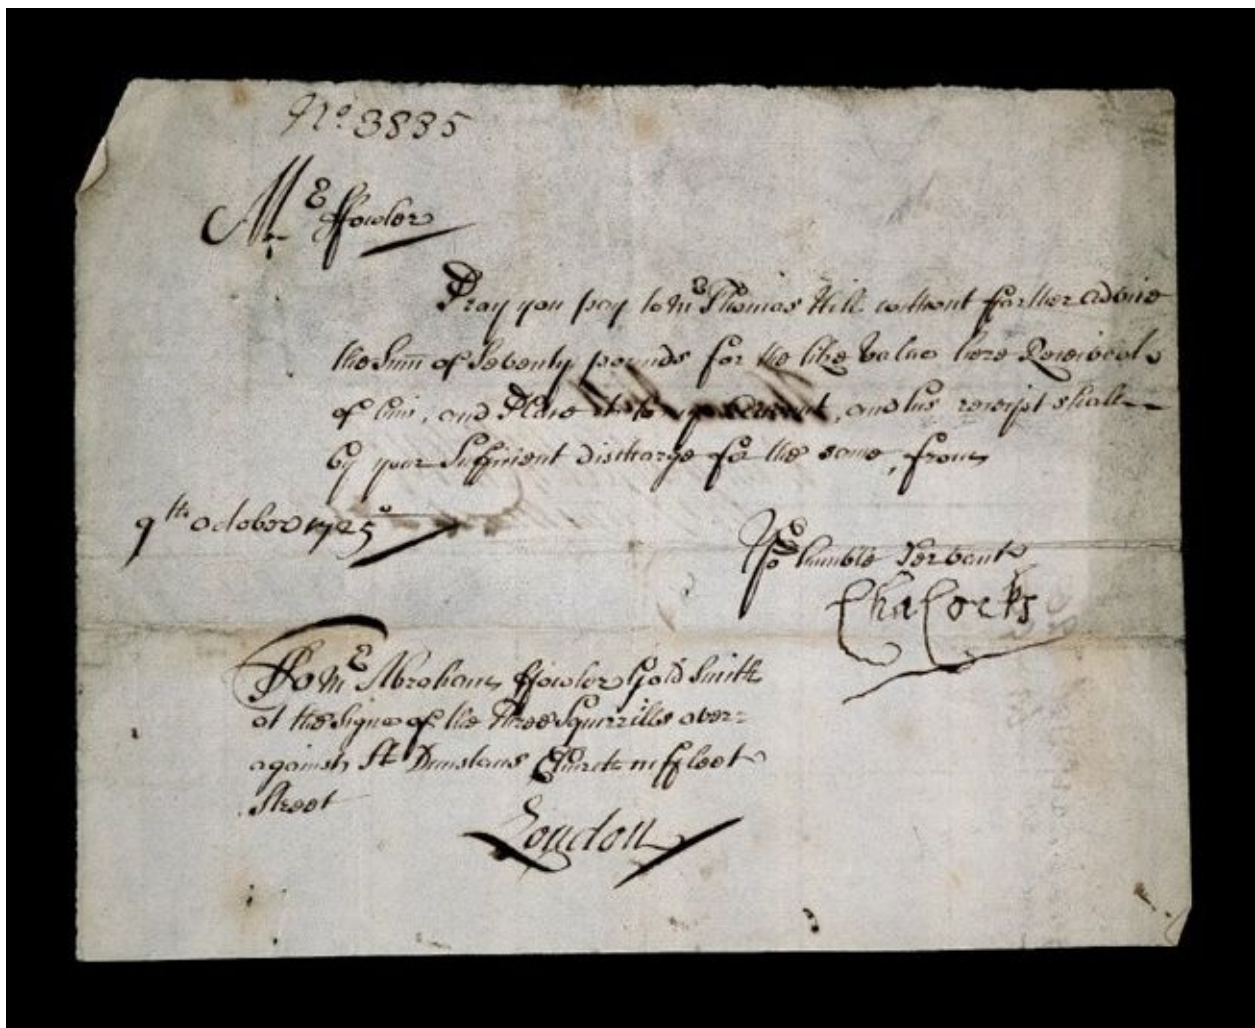 No 3835
Mr ffowler
Pray you pay to Mr Thomas Hill without ffarther advice
the Sum of Seventy pounds for the like Value here Received
of him, and Place it to my account, and his receipt shall
by your Sufficient discharge for the same, from
9th october 1725
Yor humble Servant
Cha Cocks
To Mr Abraham ffowler Gold Smith
at the Signe of the three Squirrills over=
against St Dunstans Church in ffleet
Street
London